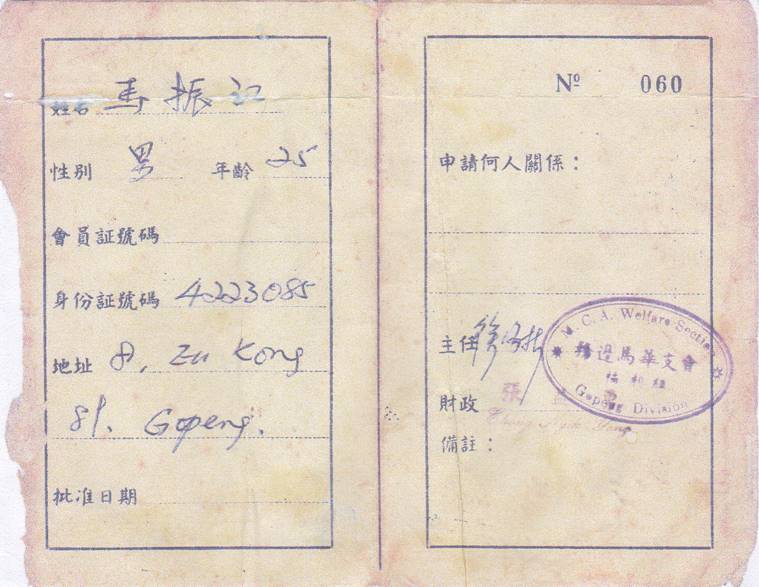 姓名 馬振江
性别 男 年齡 25
會員証號碼
身份証號碼 4223085
地址 8, Eu Kong
St. Gopeng.
批准日期
Nº 060
申請何人關係：
主任
財政 張
備註：
M. C. A. Welfare Section
務邊馬華支會
福利組
Gopeng Division